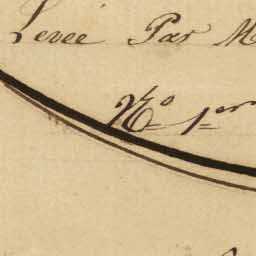 Levée Par M
N.º 1.er